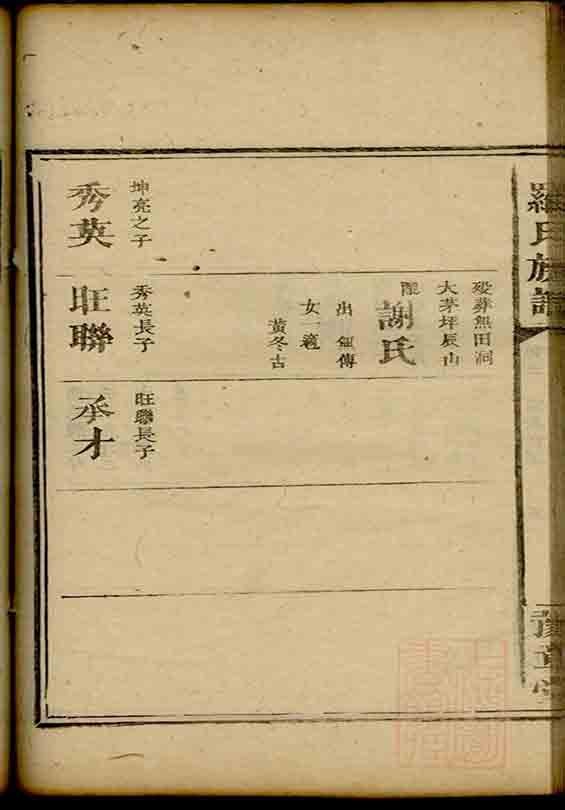 羅氏族譜
豫章堂
歿葬無田洞
大茅坪辰山
配
謝氏
出 無傳
女一適
黃冬古
坤亮之子
秀英
秀英長子
旺聯
旺聯長子
承才